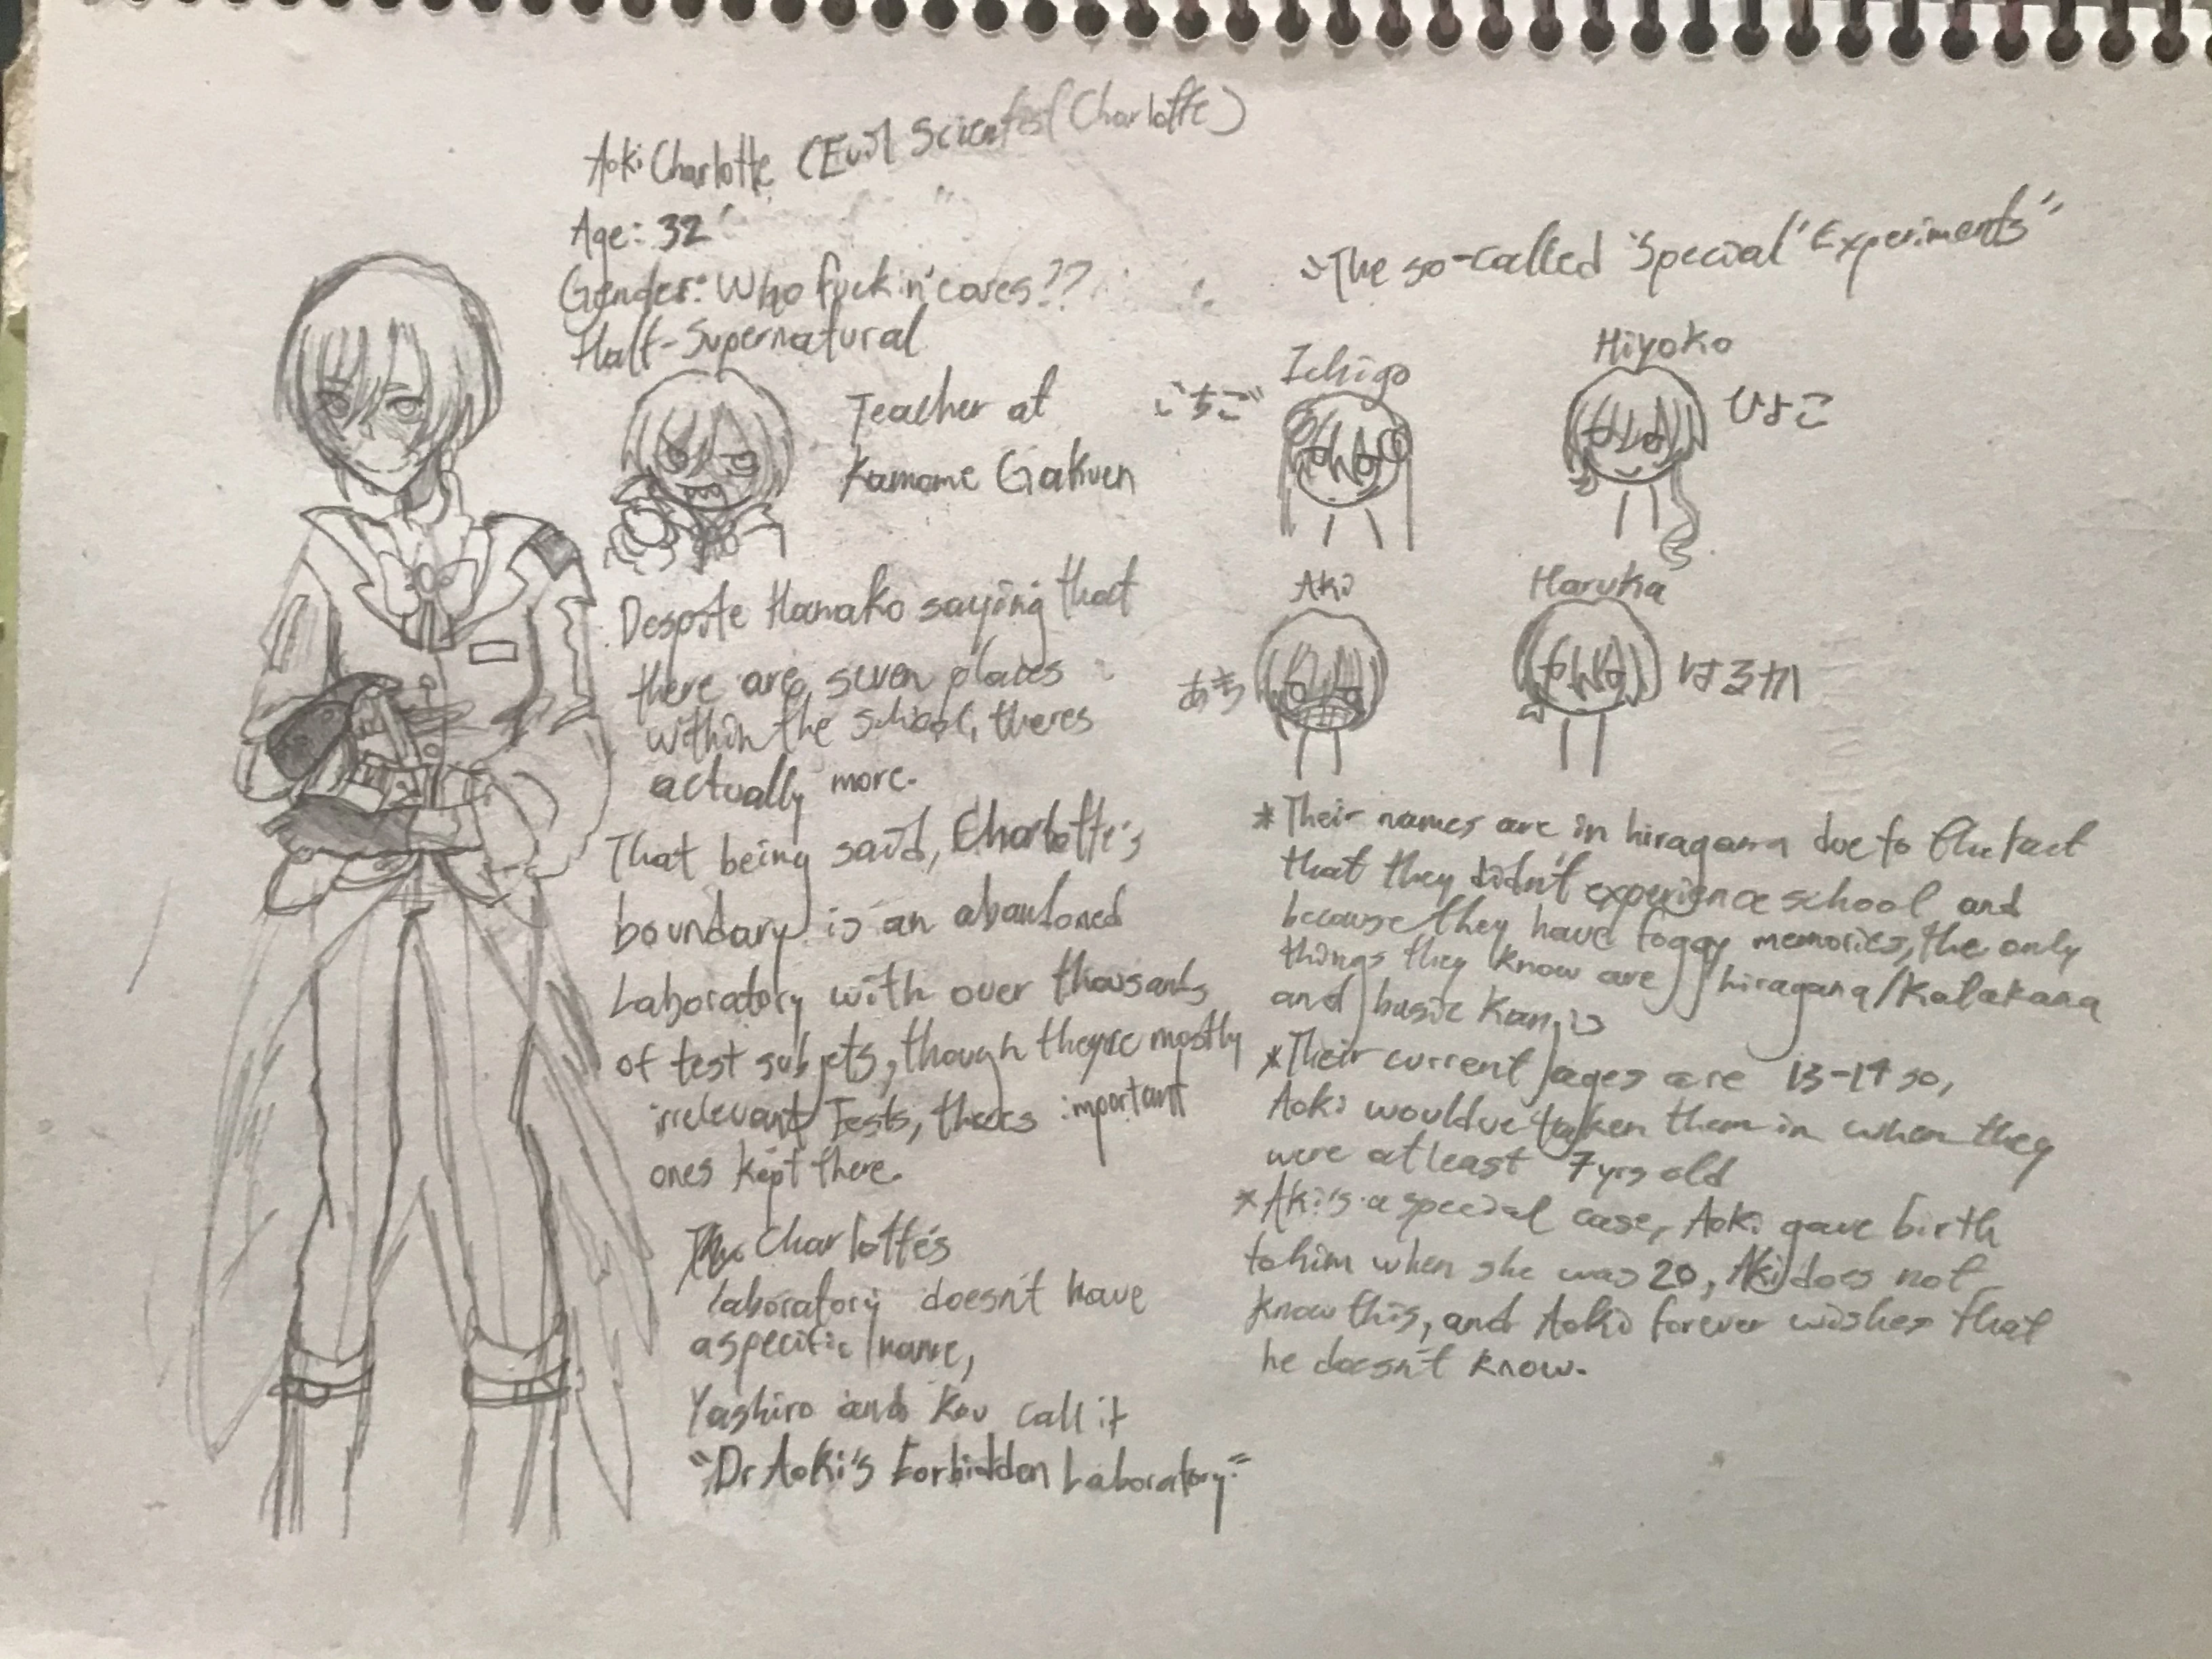 Aoki Charlotte (Evil Scientist Charlotte)
Age: 32
Gender: Who fuckin' cares??
Half-Supernatural
Teacher at
Kamome Gakuen
Despite Hanako saying that
there are seven places
within the school, theres
actually more.
That being said, Charlotte's
boundary is an abandoned
Laboratory with over thousands
of test subjets, though theyre mostly
irrelevant Tests, theres important
ones kept there.
Charlotte's
laboratory doesn't have
a specific name,
Yashiro and Kou call it
"Dr Aoki's Forbidden Laboratory."
The so-called "Special" Experiments"
Ichigo
いちご
Hiyoko
ひよこ
Aki
あき
Haruka
はるか
*Their names are in hiragana due to the fact
that they didn't experience school and
because they have foggy memories, the only
things they know are hiragana/Katakana
and basic Kanjis
*Their current ages are 13-14 so,
Aoki wouldve taken them in when they
were atleast 7yrs old
*Aki's a special case, Aoki gave birth
to him when she was 20, Aki does not
know this, and Aoki forever wishes that
he doesn't know.